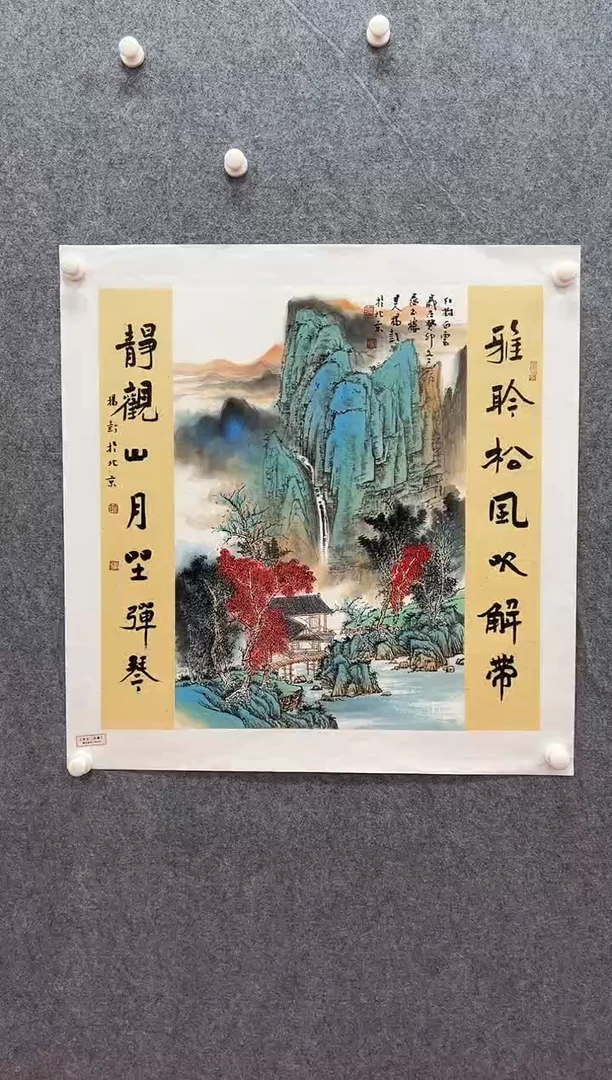 雅聆松風吹解帶
紅樹白雲
歲在癸卯
主人楊
於北京
靜觀山月坐彈琴
楊 於北京